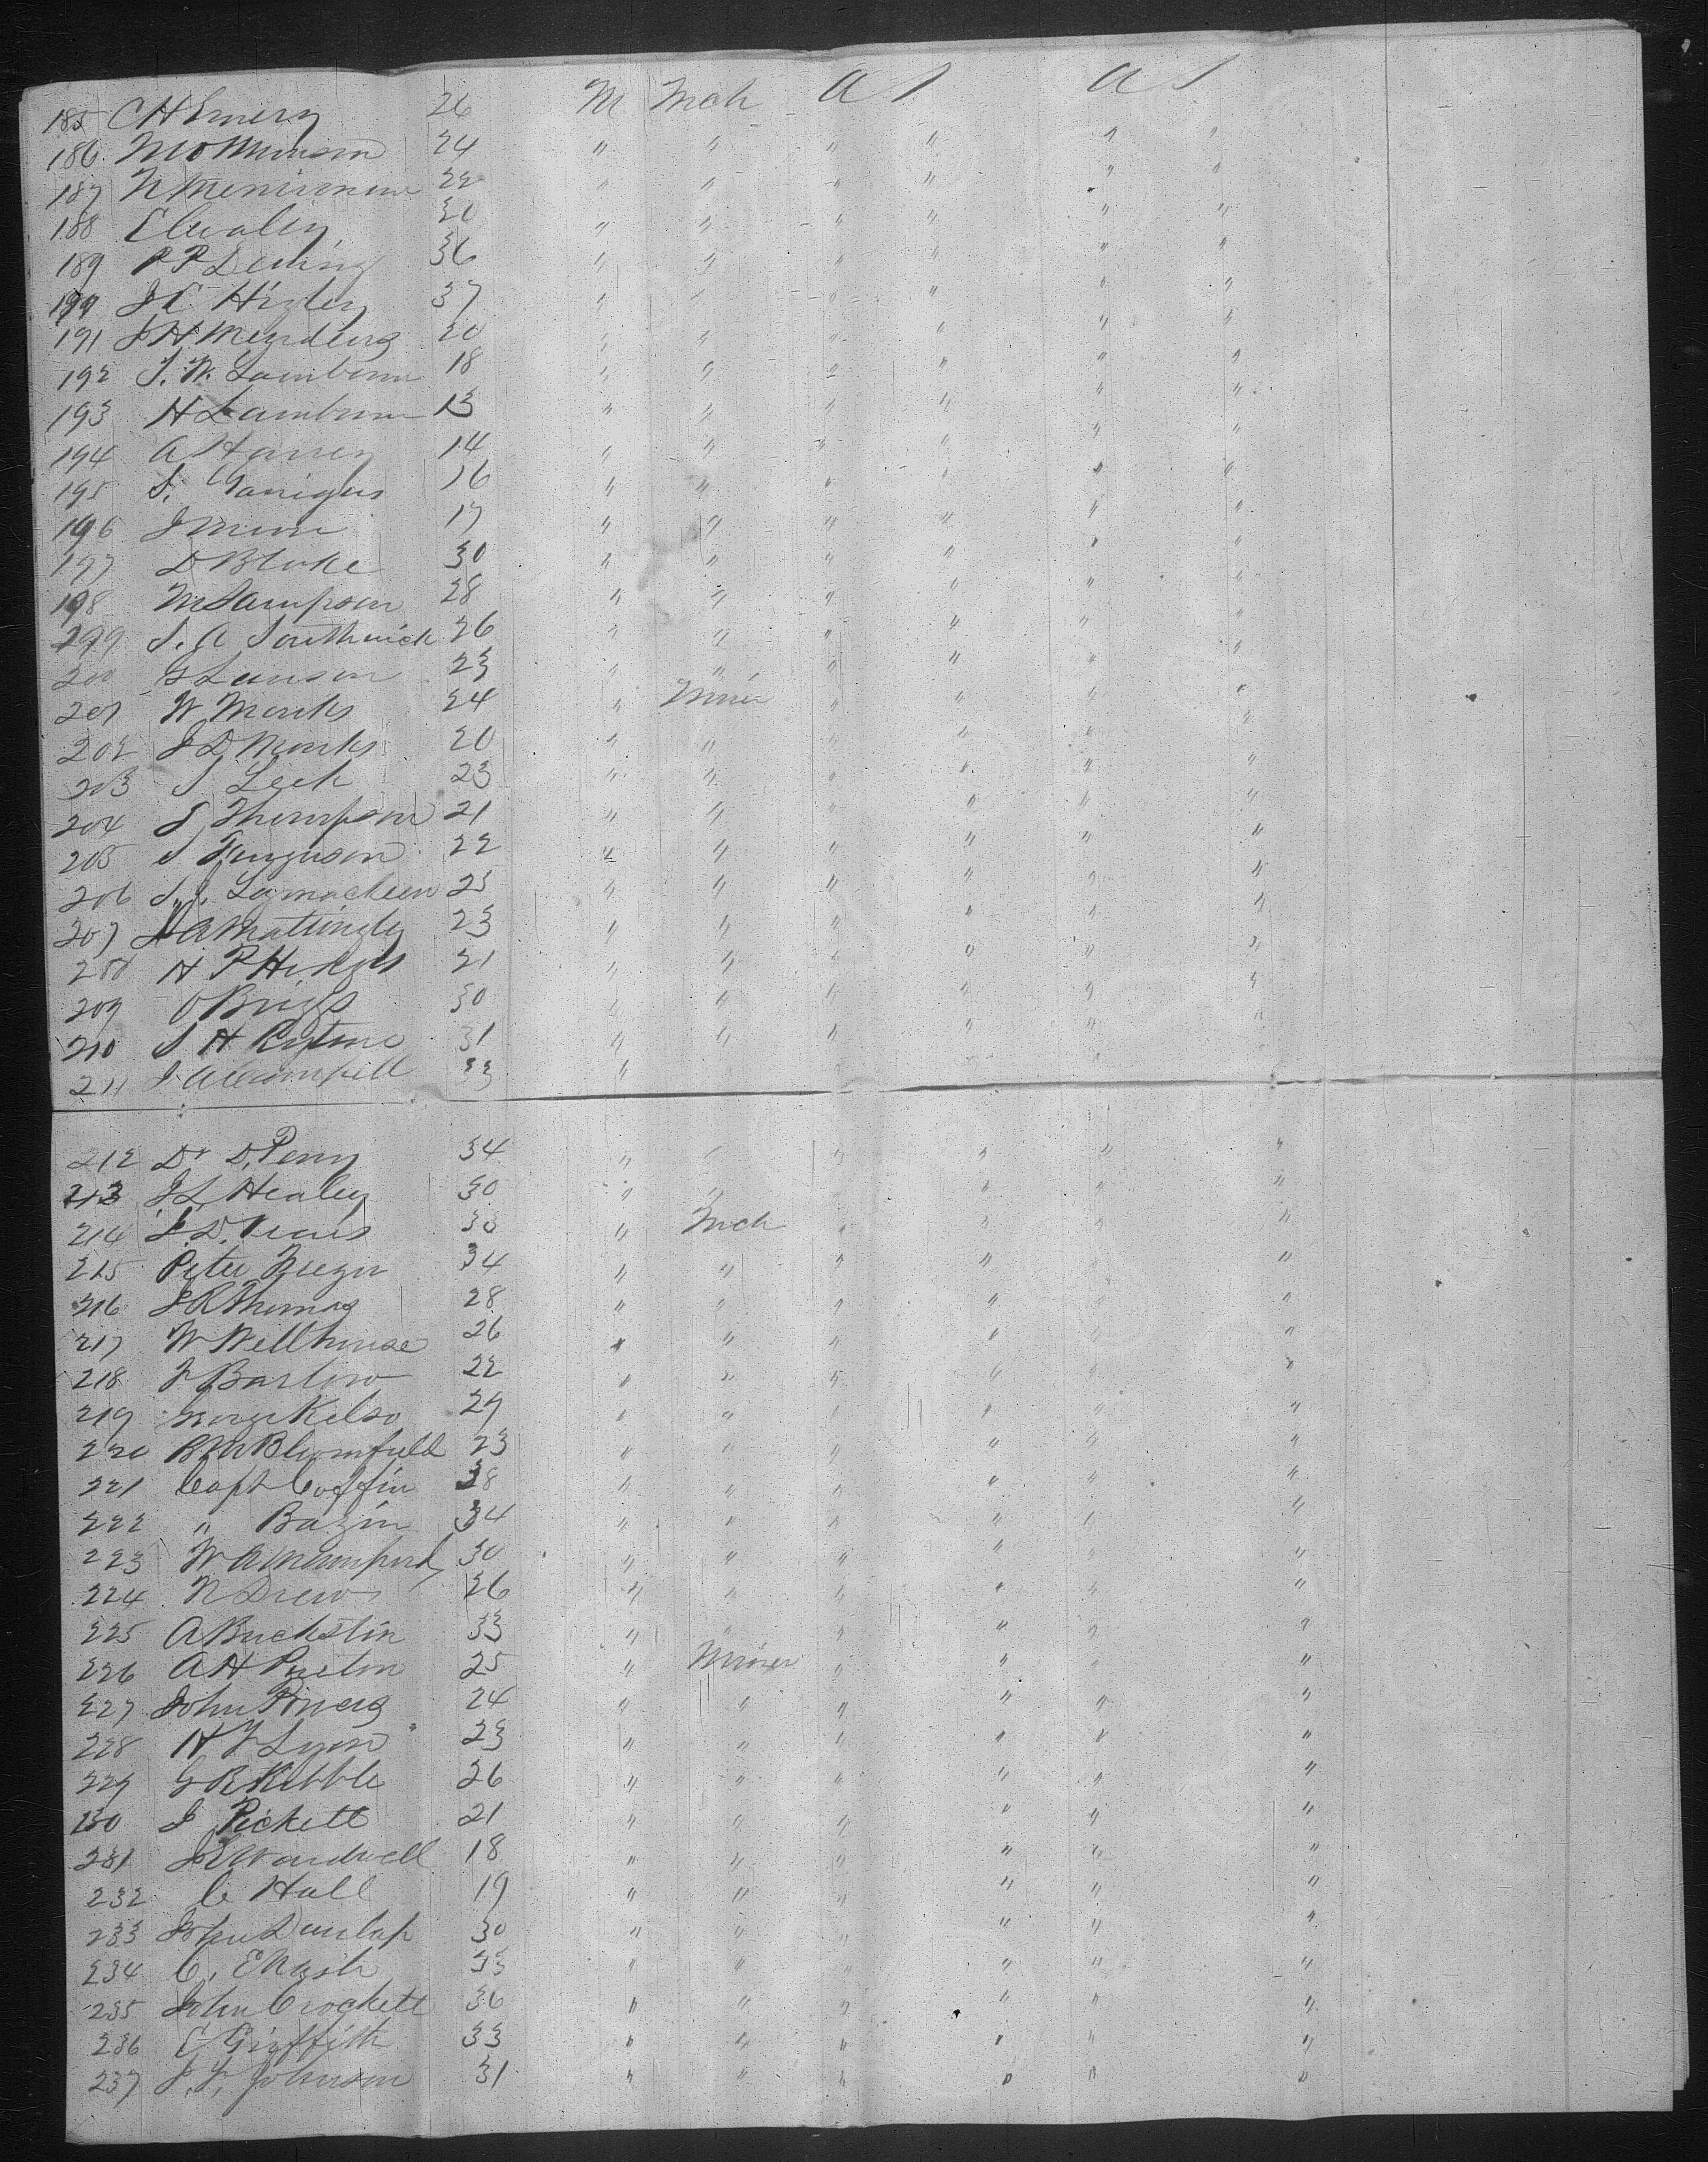 185 C H Emery 26 M Mch U S U S
186 24 " " " " " "
187 N Merriman 22 " " " " " "
188 30 " " " " " "
189 P P Deming 36 " " " " "
190 J C Higley 37 " " " " " "
191 20 " " " " " "
192 T. W. Lamborn 18 " " " " " "
193 H Lamborn 13 " " " " " "
194 A Harvey 14 " " " " " "
195 S. Garrigus 16 " " " " " "
196 17 " " " " " "
197 D Blake 30 " " " " " "
198 M Sampson 28 " " " " " "
299 S. A Southwick 26 " " " " " "
200 G Lawson 23 " " " " " "
201 W Monks 24 " Miner " " " "
202 J D Monks 20 " " " " " "
203 S Leek 23 " " " " " "
204 S Thompson 21 " " " " " "
205 S Ferguson 22 " " " " " "
206 S. J. 25 " " " " " "
207 A Mattingly 23 " " " " " "
208 H P 21 " " " " " "
209 O Briggs 30 " " " " " "
210 S H 31 " " " " " "
211 J A Campbell 33 "
212 Dr D. Perry 34 " " " " " "
213 J L Healey 30 " " " " " "
214 J. D. 33 " Mch " " " "
215 Peter 34 " " " " "
216 J R Thomas 28 " " " " " "
217 W Wellhouse 26 " " " " " "
218 F Barlow 22 " " " " " "
219 George Kelso 29 " " " " " "
220 R M Bloomfield 23 " " " " " "
221 Capt Coffin 38 " " " " " "
222 " Bazin 34 " " " " " "
223 W A Mumford 30 " " " " " "
224 N Drew 26 " " " " " "
225 A Buckstin 33 " " " " " "
226 A H 25 " Miner " " "
227 John Powers 24 " " " " " "
228 H F Lyon 23 " " " " " "
229 G R Kibble 26 " " " " " "
230 J Pickett 21 " " " " " "
231 J E Wardwell 18 " " " " " "
232 C Hall 19 " " " " " "
233 John Dunlap 30 " " " " " "
234 C. E Nash 33 " " " " " "
235 John Crockett 36 " " " " " "
236 E Griffith 33 " " " " " "
237 J. F. Johnson 31 " " " " " "